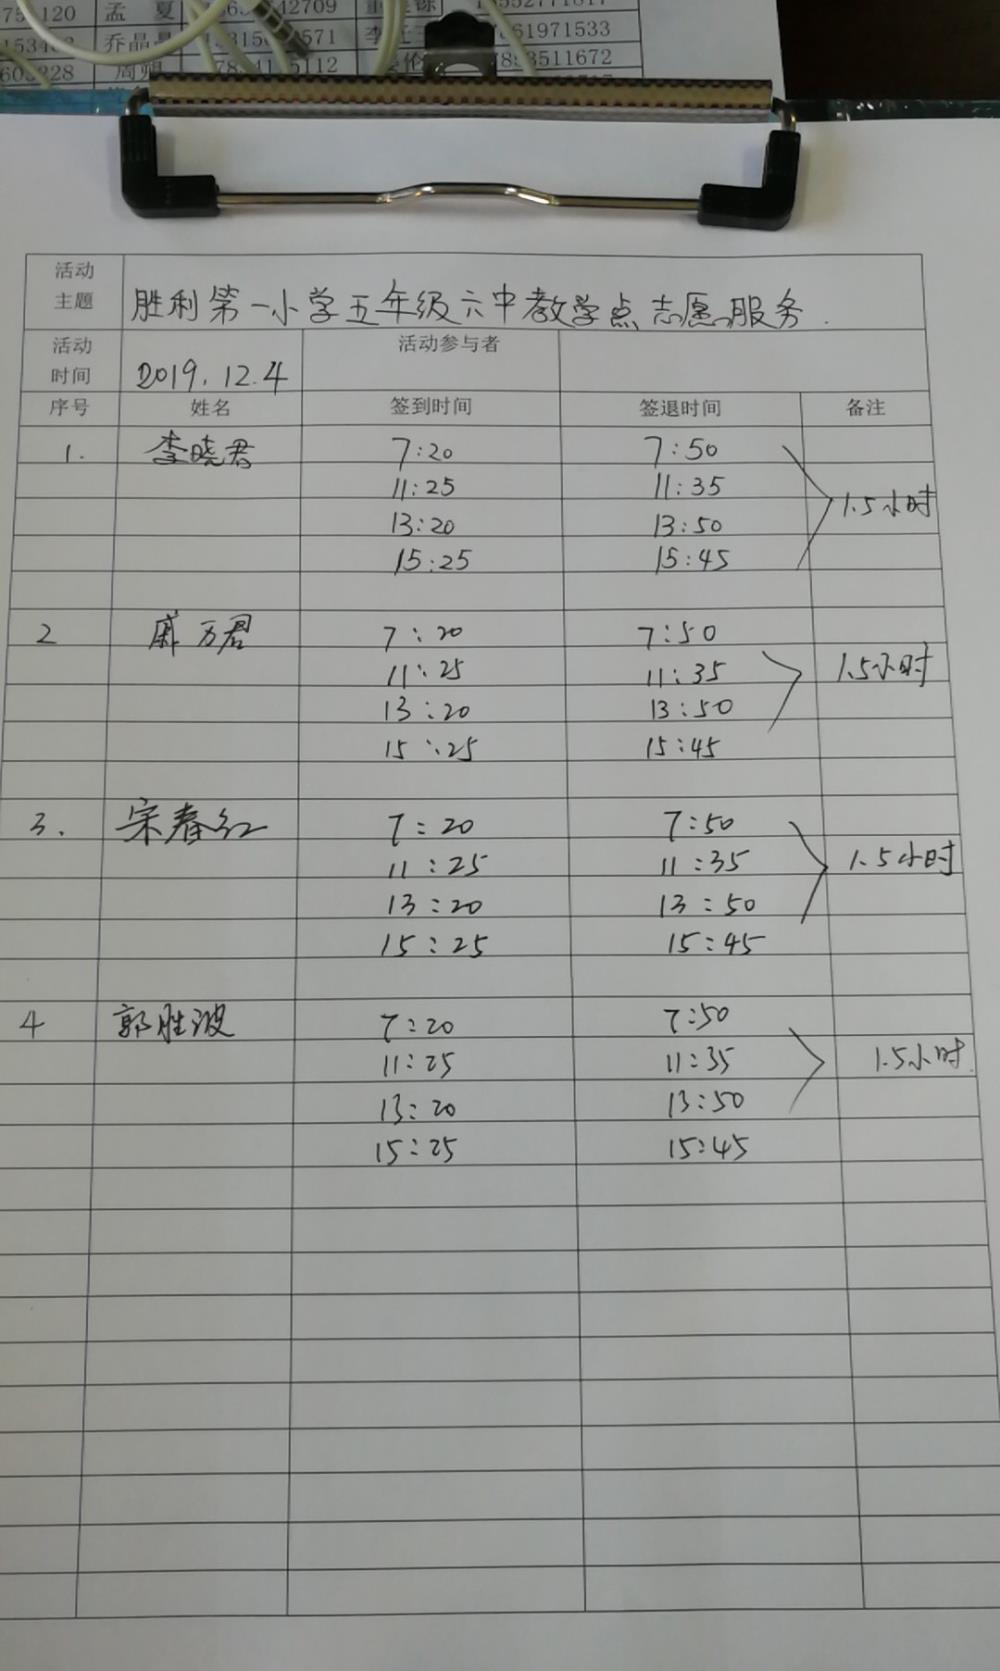 孟 夏
乔晶
571
1971533
周
5112
3511672
活动主题 胜利第一小学五年级六中教学点志愿服务.
活动时间 2019.12.4 活动参与者
序号 姓名 签到时间 签退时间 备注
1. 李晓君 7:20 7:50
11:25 11:35 1.5小时
13:20 13:50
15:25 15:45
2 戚万君 7:20 7:50
11:25 11:35 1.5小时
13:20 13:50
15:25 15:45
3. 宋春红 7:20 7:50
11:25 11:35 1.5小时
13:20 13:50
15:25 15:45
4 郭胜波 7:20 7:50
11:25 11:35 1.5小时.
13:20 13:50
15:25 15:45